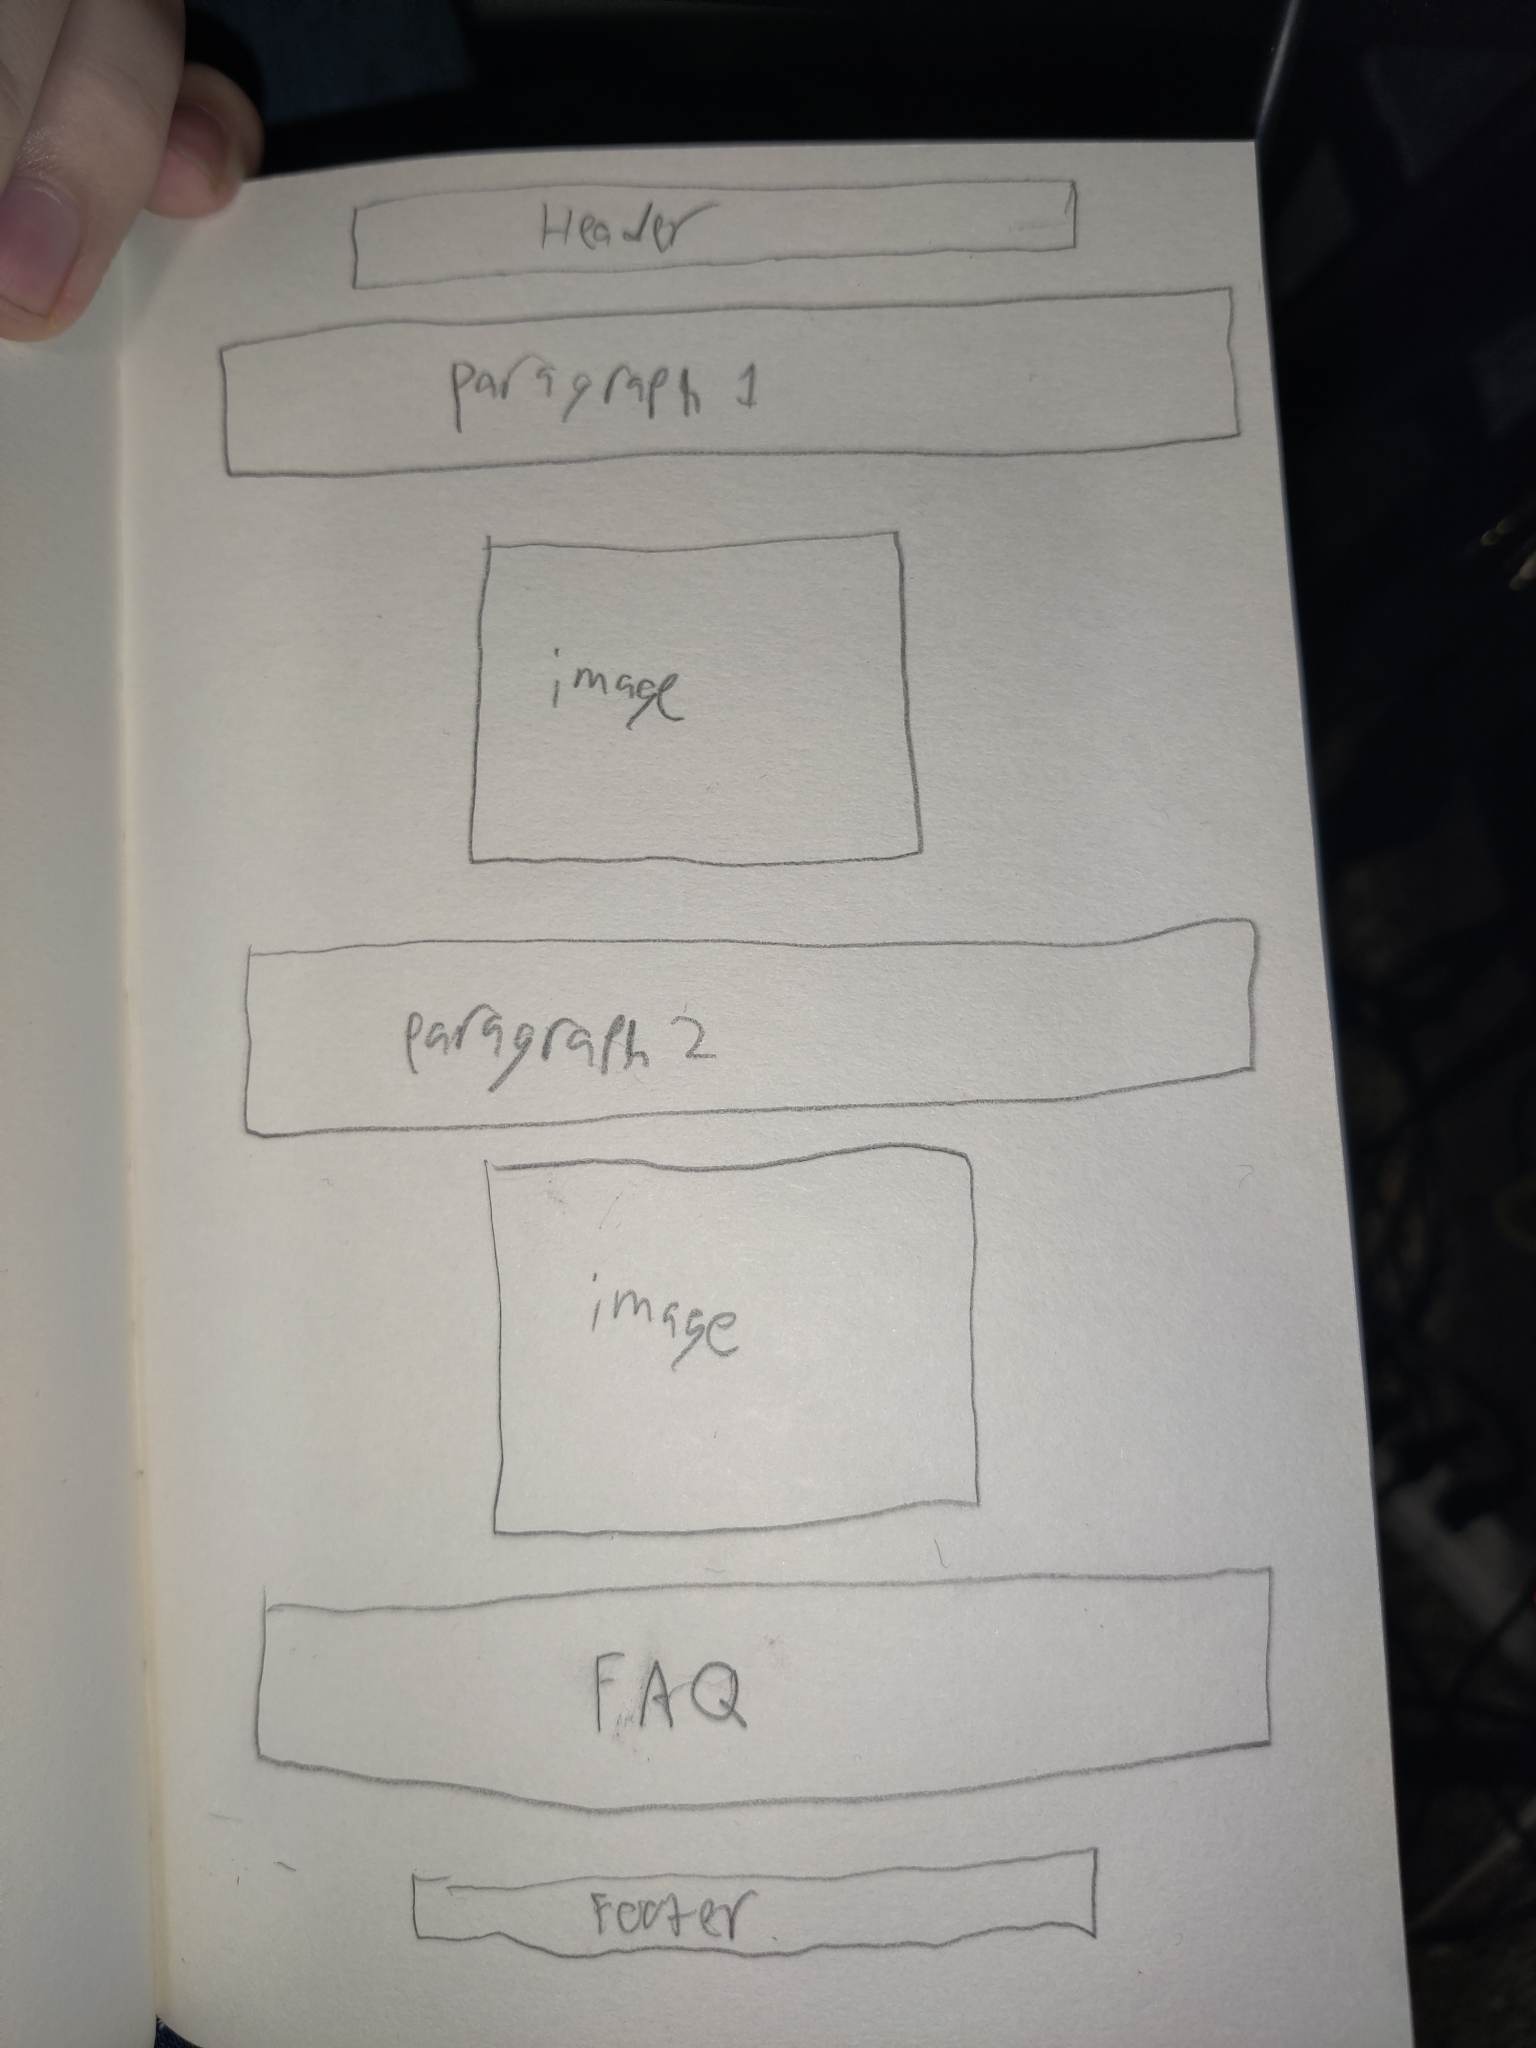 Header
paragraph 1
image
paragraph 2
image
FAQ
Footer